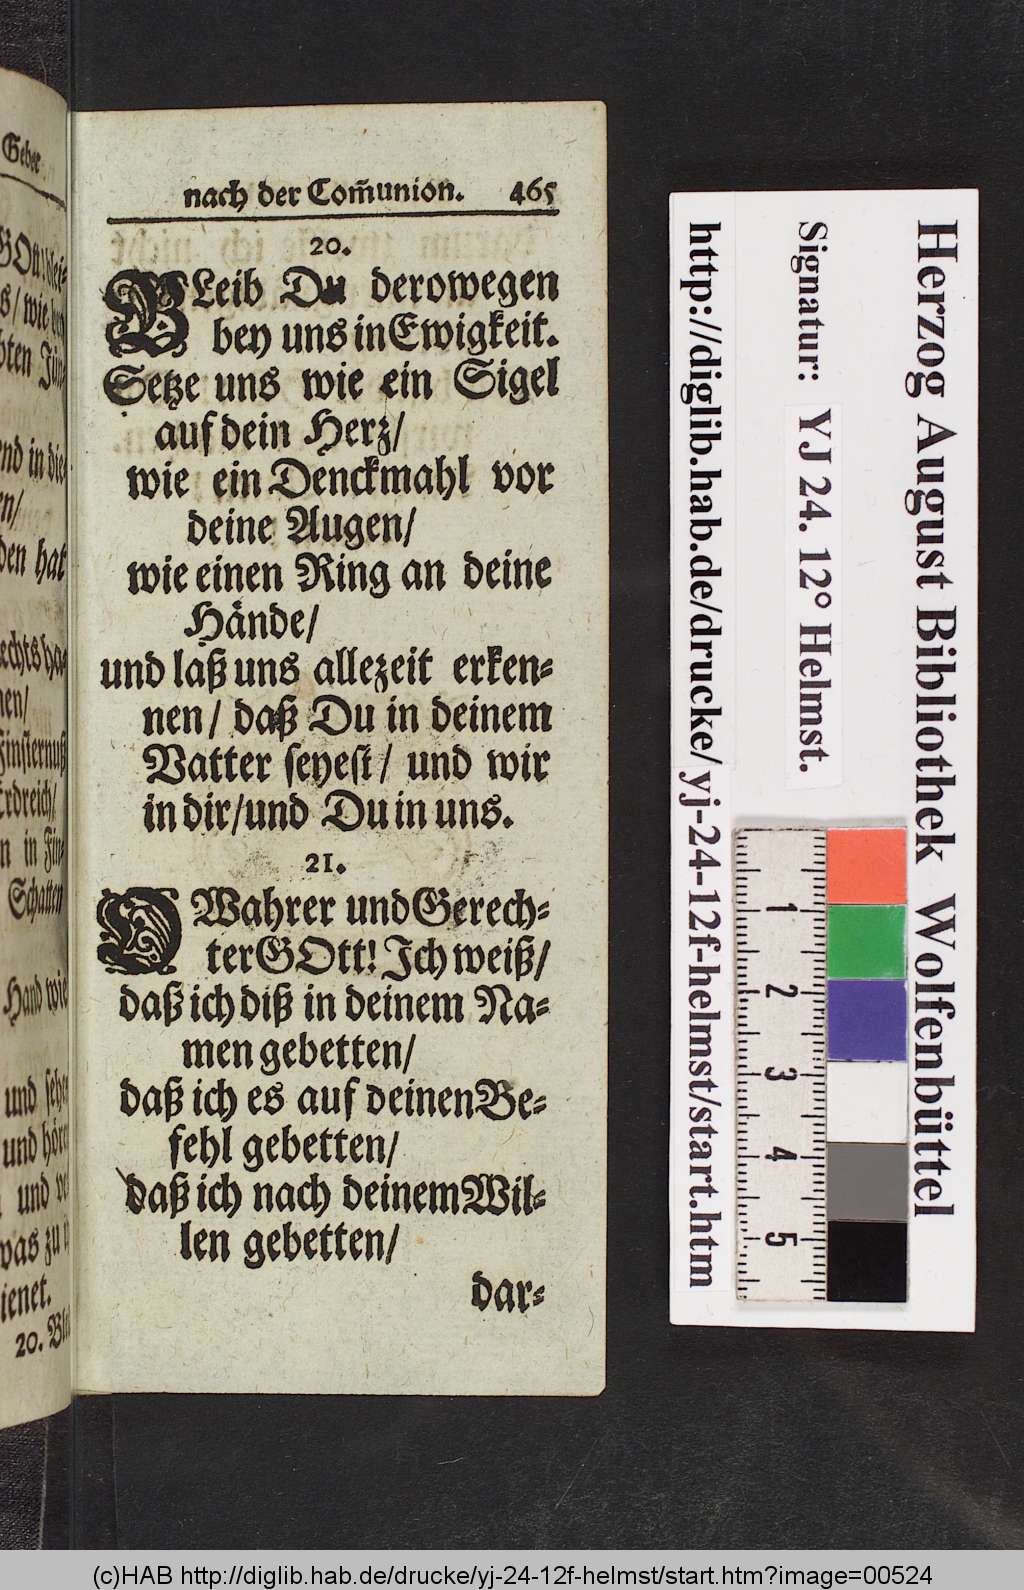 nach der Com̃union. 465
20.
BLeib Du derowegen
bey uns in Ewigkeit.
Setze uns wie ein Sigel
auf dein Herz/
wie ein Denckmahl vor
deine Augen/
wie einen Ring an deine
Hände/
und laß uns allezeit erken-
nen/ daß Du in deinem
Vatter seyest/ und wir
in dir/ und Du in uns.
21.
O Wahrer und Gerech-
ter GOtt! Ich weiß/
daß ich diß in deinem Na-
men gebetten/
daß ich es auf deinen Be-
fehl gebetten/
daß ich nach deinem Wil-
len gebetten/
dar-
Geber
GOtt!
s/ wie
bten
end in die
en/
den hat
echts ha-
nen/
Finsternuß
Erdreich/
n in Fin-
Schatten
Hand wie
und sehen
und
und
was zu
ienet.
20.
Herzog August Bibliothek Wolfenbüttel
Signatur: YJ 24. 12° Helmst.
http://diglib.hab.de/drucke/yj-24-12f-helmst/start.htm
1
2
3
4
5
(c)HAB http://diglib.hab.de/drucke/yj-24-12f-helmst/start.htm?image=00524